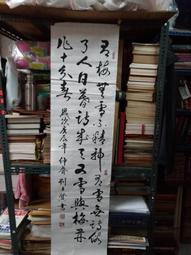 有梅無雪不精神有雪無詩俗
了人日暮詩成天又雪與梅并
作十分春 庚辰年仲春 書